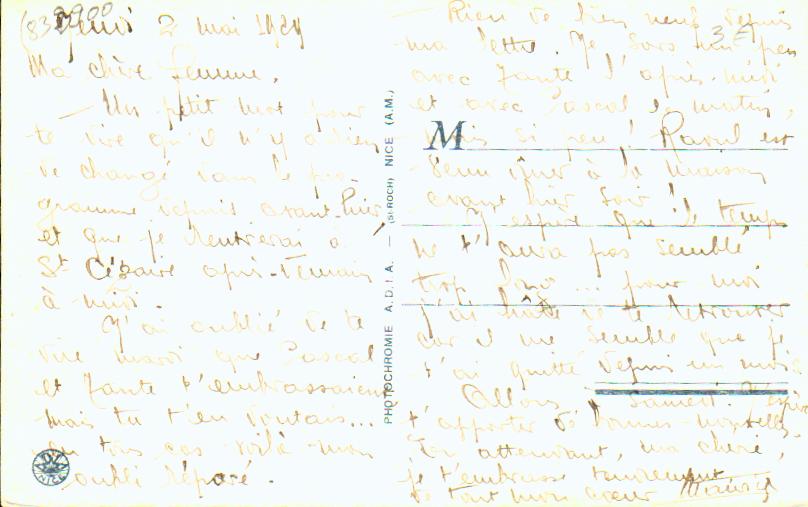 (83900
Jeudi 2 mai 1929
Ma chère femme,
— Un petit mot pour
te dire qu'il n'y a rien
de changé dans le pro-
gramme depuis avant-hier
et que je rentrerai à
St Cézaire après-demain
à midi.
J'ai oublié de te
dire mardi que Pascal
et Zante t'embrassaient
mais tu t'en doutais...
en tous cas voilà mon
oubli réparé.
PHOTOCHROMIE A.D.I.A. — (St-ROCH) NICE (A.M.)
ADIA
NICE
3 E
— Rien de bien neuf depuis
ma lettre. Je sors un peu
avec Zante l'après-midi
et avec Pascal le matin,
mais si peu! Raoul est
venu dîner à la maison
avant hier soir!
M
J'espère que le temps
ne t'aura pas semblé
trop long... pour moi
j'ai hâte de te retrouver
car il me semble que je
t'ai quitté depuis un mois
Allons à samedi. J'espère
t'apporter de bonnes nouvelles.
En attendant, ma chérie,
je t'embrasse tendrement
de tout mon cœur